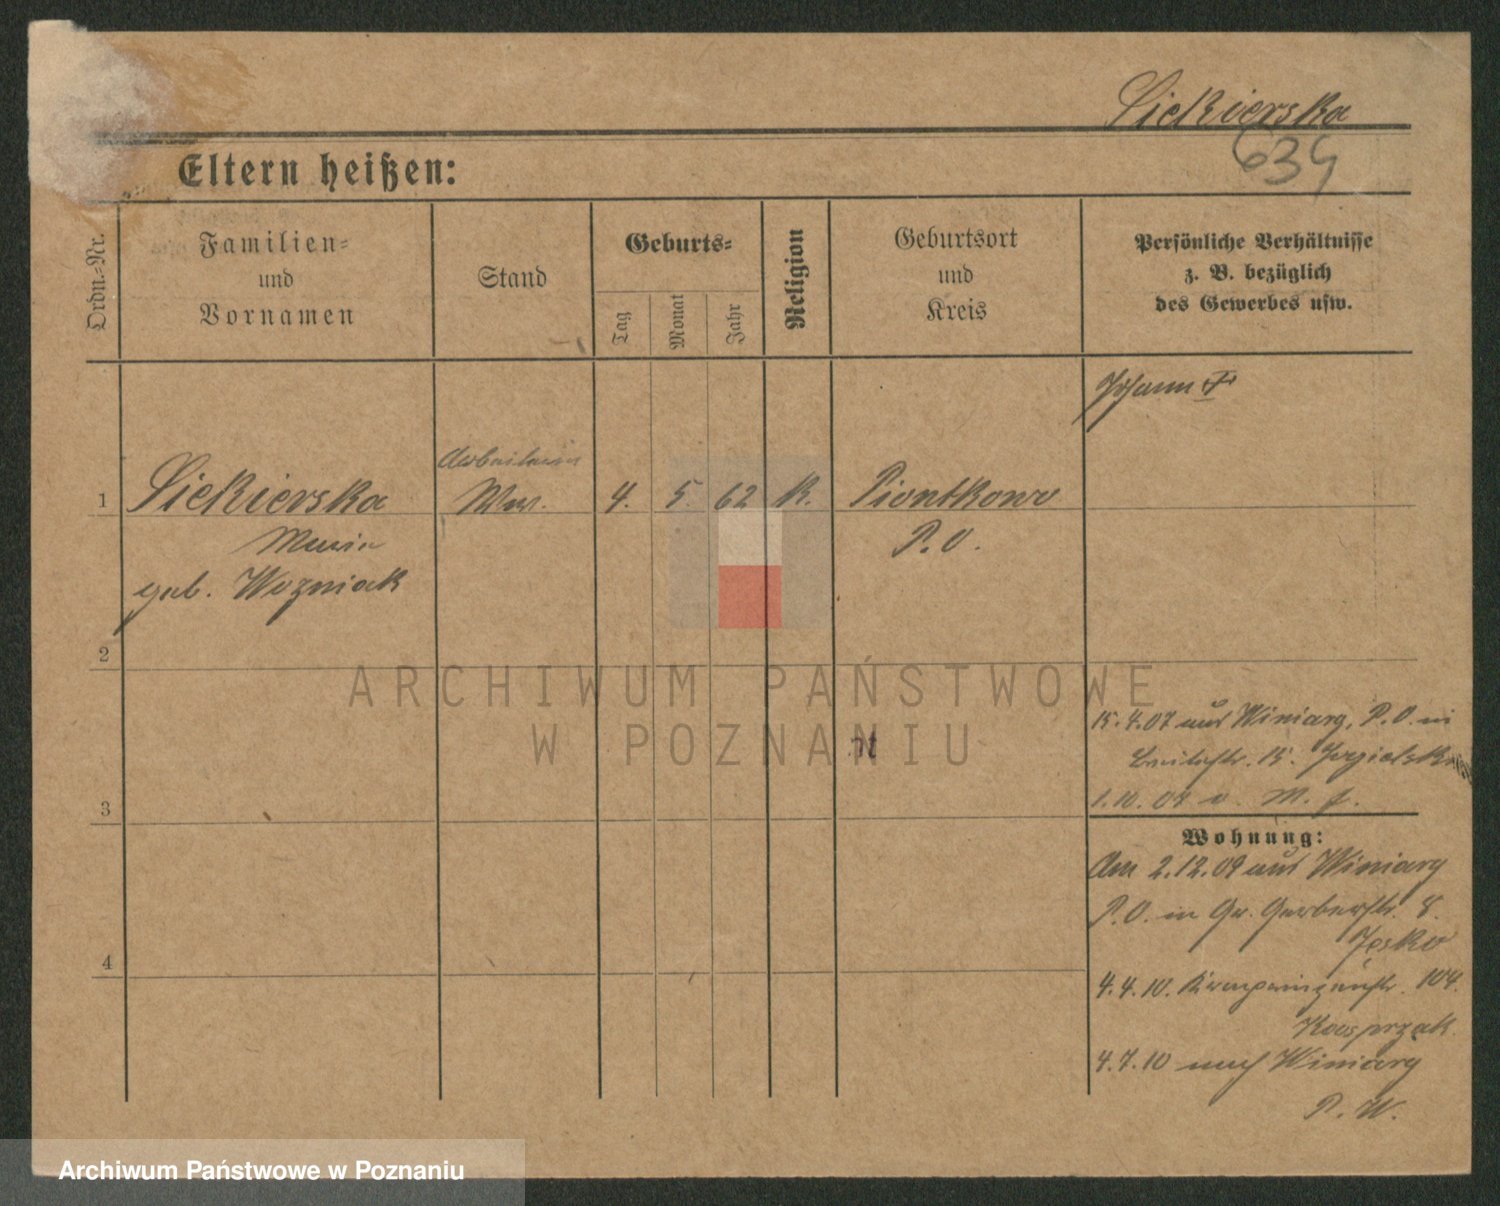 Siekierska
634
Eltern heißen:
Ordn.-Nr.
Familien-
und
Vornamen
Stand
Geburts-
Tag
Monat
Jahr
Religion
Geburtsort
und
Kreis
Persönliche Verhältnisse
z. B. bezüglich
des Gewerbes usw.
Johann †
Arbeiterin
1 Siekierska Ww. 4. 5. 62 K. Piontkowo
Maria P. O.
geb. Wozniak
2
ARCHIWUM PAŃSTWOWE
W POZNANIU
15.4.07 aus Winiary, P.O. in
Breitestr. 15.
3 1.10.09 v. M. f.
Wohnung:
Am 2.12.09 aus Winiary
P.O. in Gr. Gerberstr. 8.
Jesko
4 4.4.10. Kronprinzenstr. 104.
Kasprzak
4.7.10 nach Winiary
P. W.
Archiwum Państwowe w Poznaniu